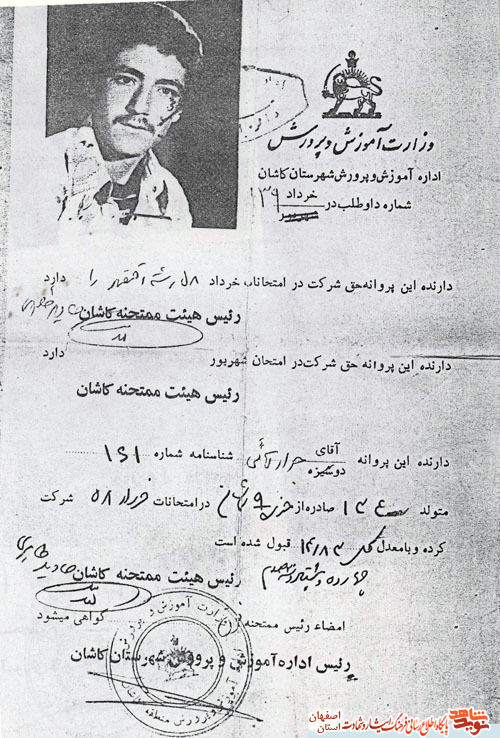 وزارت آموزش و پرورش
اداره آموزش و پرورش شهرستان کاشان
شماره داوطلب در خرداد ۱۳۹
شهریور
دارنده این پروانه حق شرکت در امتحانات خرداد ۵۸ رشته را دارد
رئیس هیئت ممتحنه کاشان
دارنده این پروانه حق شرکت در امتحان شهریور دارد
رئیس هیئت ممتحنه کاشان
دارنده این پروانه آقای دوشیزه شناسنامه شماره ۱۶۱
متولد صادره از در امتحانات خرداد ۵۸ شرکت
کرده و با معدل کل ۱۴/۸۳ قبول شده است
چهارده و هشتاد و سه صدم
رئیس هیئت ممتحنه کاشان
امضاء رئیس ممتحنه گواهی میشود
رئیس اداره آموزش و پرورش شهرستان کاشان
وزارت آموزش و پرورش
نوید شاهد
پایگاه اطلاع رسانی فرهنگ ایثار و شهادت
استان اصفهان